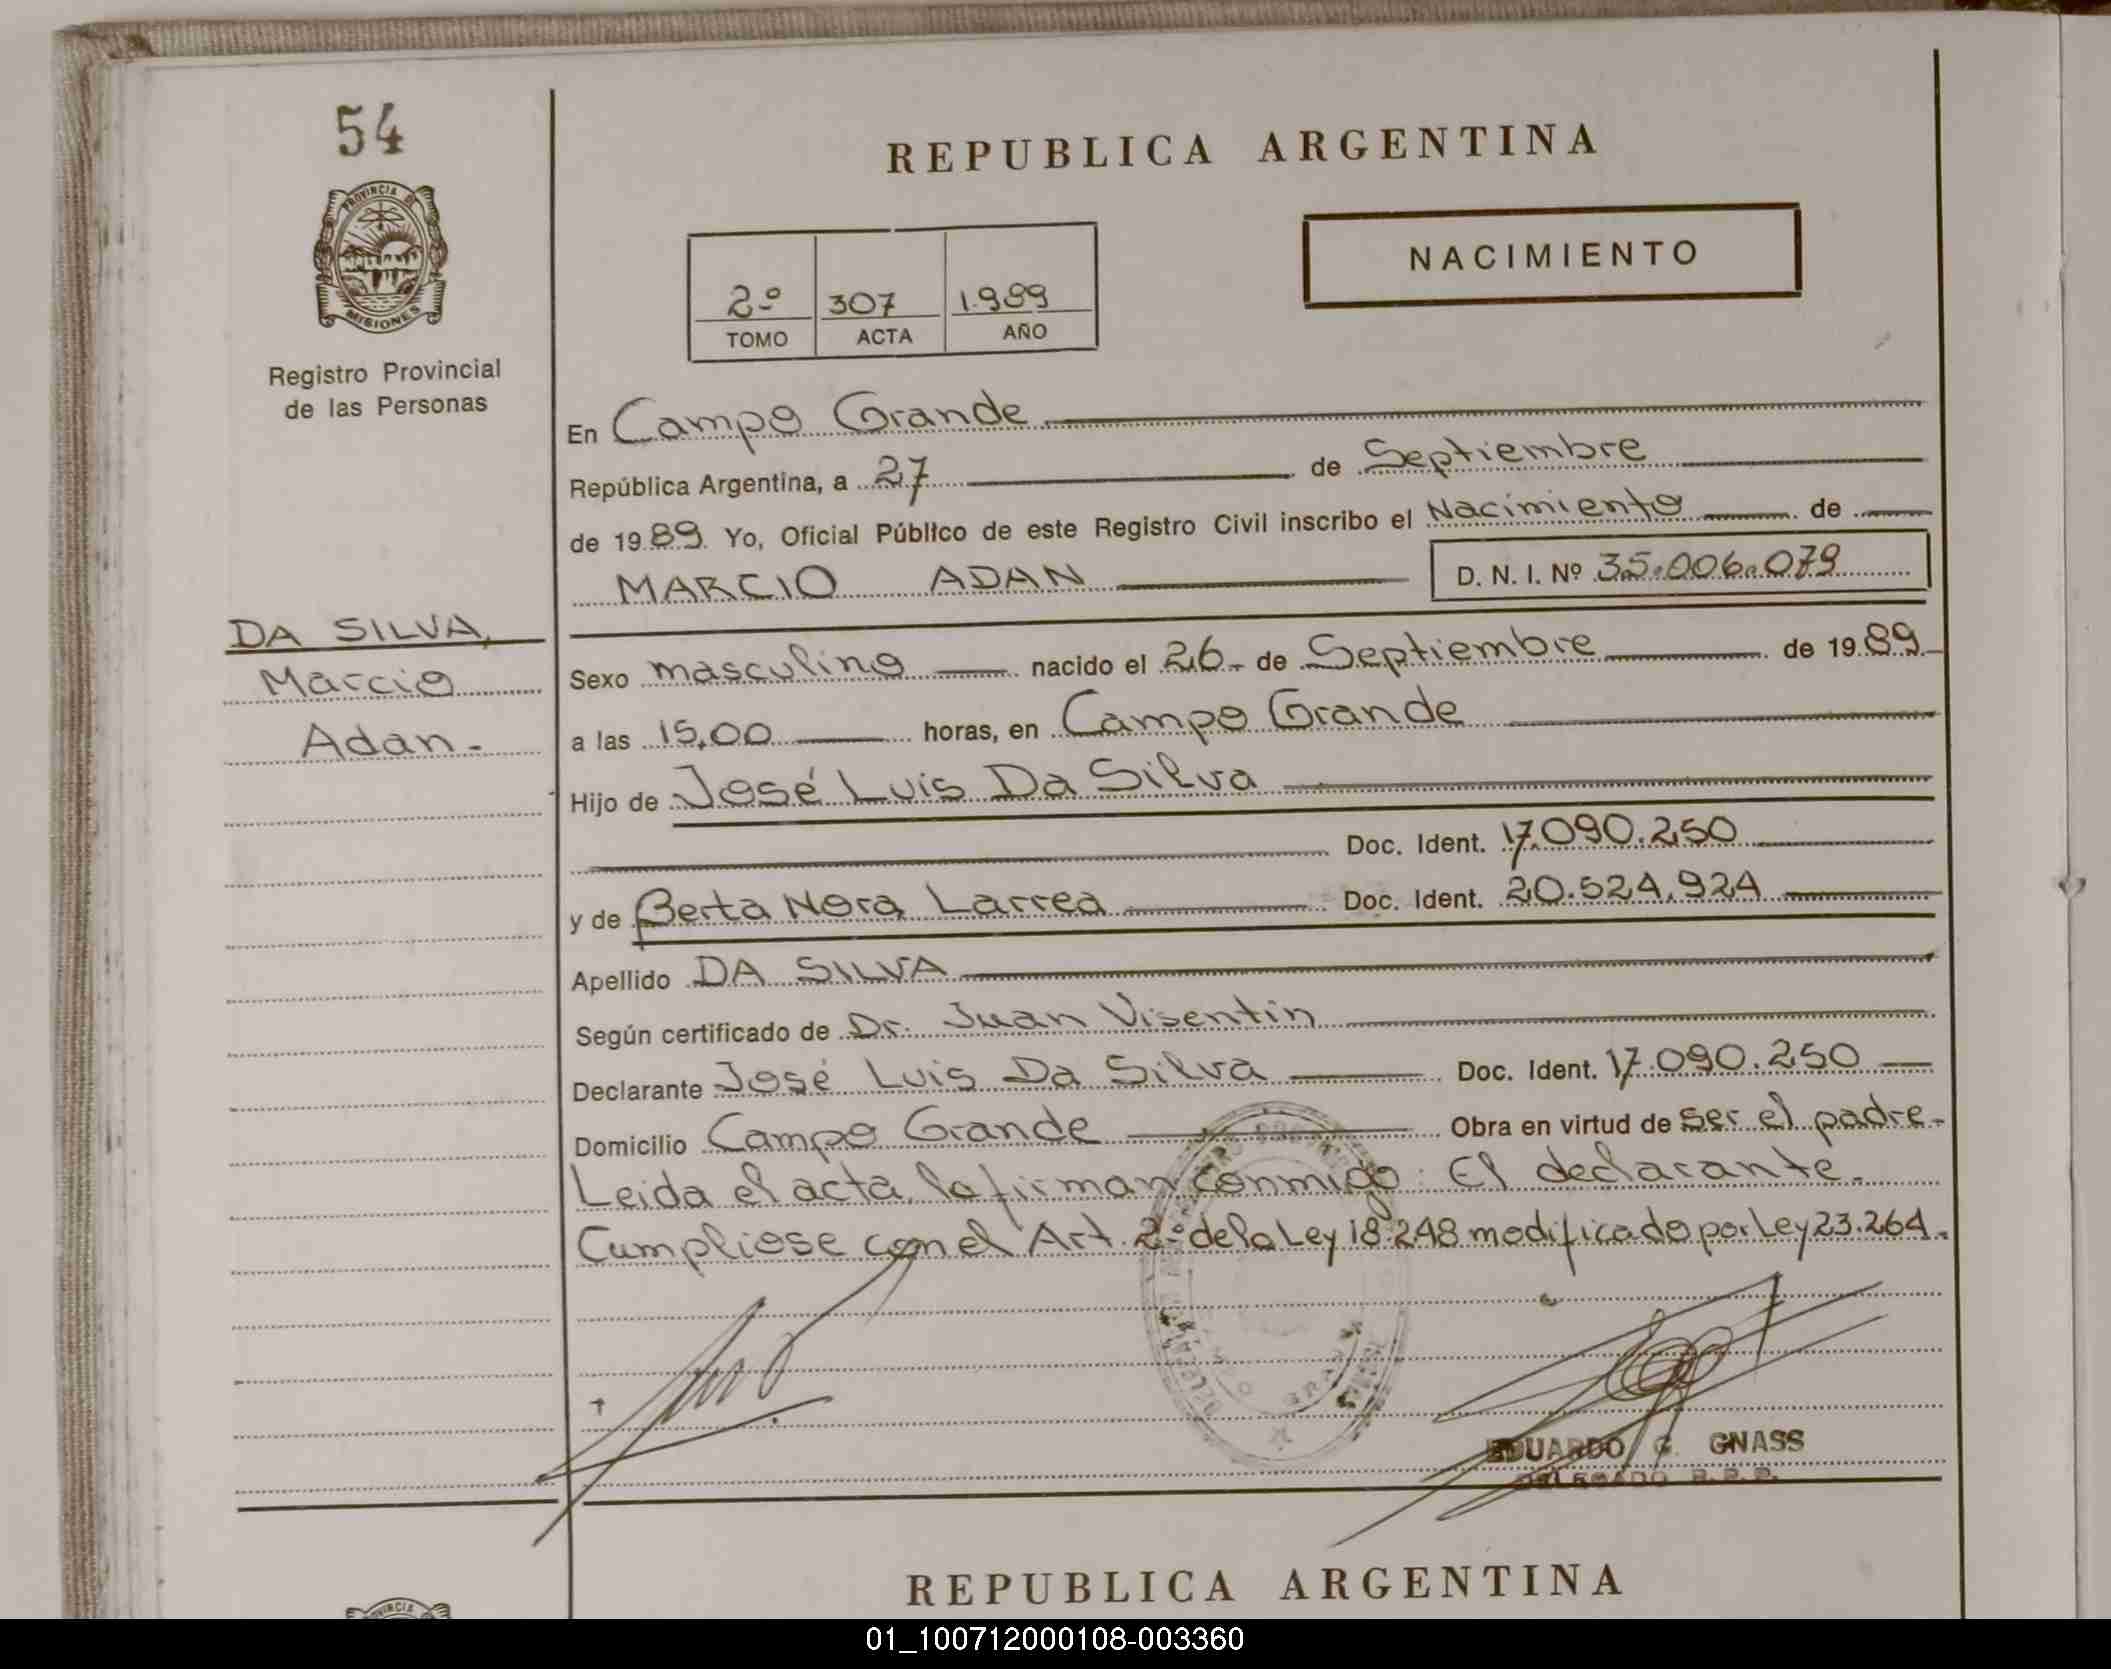 54
PROVINCIA DE
MISIONES
Registro Provincial
de las Personas
REPUBLICA ARGENTINA
NACIMIENTO
2º 307 1.989
TOMO ACTA AÑO
En Campo Grande
República Argentina, a 27 de Septiembre
de 1989 Yo, Oficial Público de este Registro Civil inscribo el Nacimiento de
MARCIO ADAN D. N. I. Nº 35.006.079
DA SILVA,
Marcio
Adan.-
Sexo masculino nacido el 26- de Septiembre de 1989-
a las 15,00 horas, en Campo Grande
Hijo de José Luis Da Silva
Doc. Ident. 17.090.250
y de Berta Nora Larrea Doc. Ident. 20.524.924
Apellido DA SILVA
Según certificado de Dr. Juan Visentin
Declarante José Luis Da Silva Doc. Ident. 17.090.250
Domicilio Campo Grande Obra en virtud de ser el padre-
Leida el acta, la firman conmigo: El declarante.
Cumpliose con el Art. 2º de la Ley 18.248 modificado por Ley 23.264.
EDUARDO G. GNASS
DELEGADO R.P.P.
REPUBLICA ARGENTINA
01_100712000108-003360